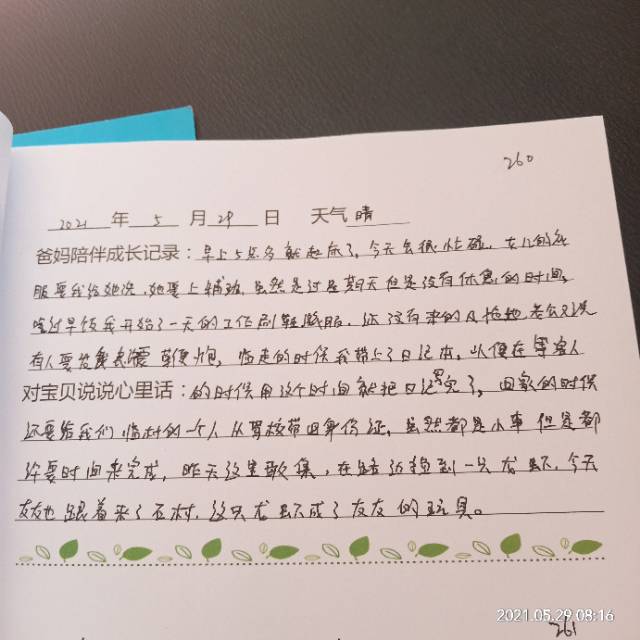 260
2021 年 5 月 29 日 天气 晴
爸妈陪伴成长记录：早上5点多就起床了，今天会很忙碌，女儿的衣
服要我给她洗，她要上辅助，虽然是过星期天但是没有休息的时间，
吃过早饭我开始了一天的工作刷鞋 服，还没有来的及拖地，老公又说
有人要 草便 ，临走的时候我带上了日记本，以便在等客人
对宝贝说说心里话：的时候用这个时间就把日记写完了，回家的时候
还要给我们临村的一个人从学校带回身份证，虽然都是小事但是都
许要时间来完成，昨天这里敢集，在路边捡到一只龙虾，今天
友友也跟着来了石村，这只龙虾成了友友的玩具。
2021.05.29 08:16
261